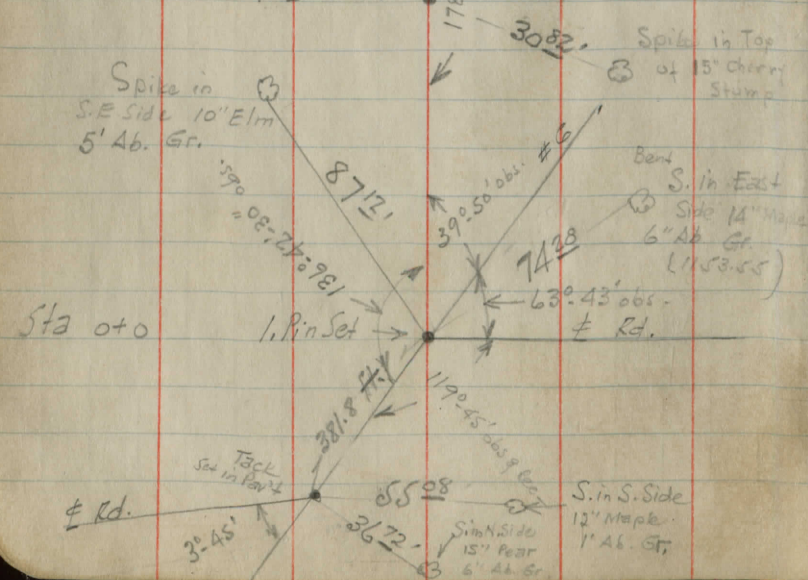 178
30 82'
Spike in Top
of 15" Cherry
Stump
Spike in
S.E Side 10" Elm
5' Ab. Gr.
87 12'
39°-50' obs.
#6
Bent
S. in East
Side 14" Maple
6" Ab Gr.
(1153.55)
74 28
136°-42'-30" obs.
63°-43' obs.
Sta 0+0
1. Pin Set
℄ Rd.
381.8
119°-45' obs
Tack
Set in Pav't
℄ Rd.
55 08
S. in S. Side
12" Maple
1' Ab. Gr.
3°-45'
36 72'
S. in N. Side
15" Pear
6" Ab Gr.